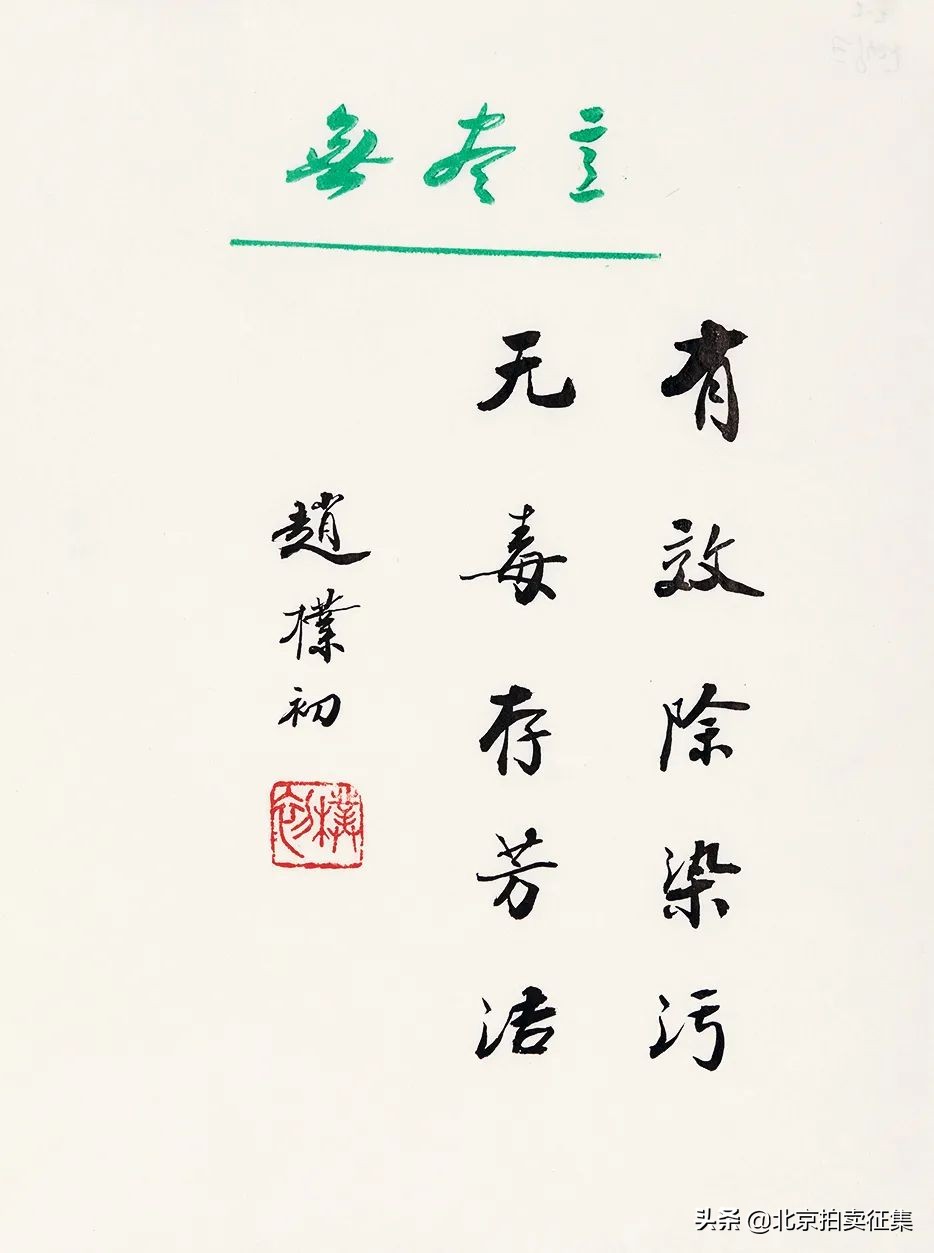 無尽意
有效除染污
无毒存芳洁
趙樸初
樸初
头条 @北京拍卖征集